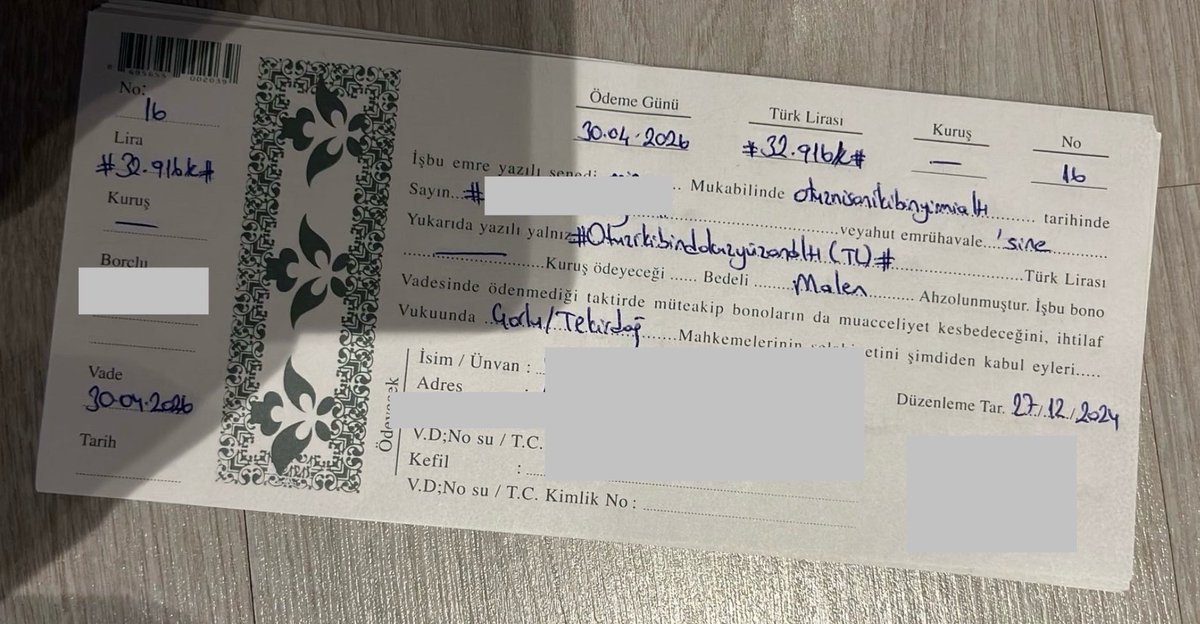 No:
16
Lira
#32.916₺#
Kuruş
—
Borçlu
Vade
30.04.2026
Tarih
Ödeme Günü
30.04.2026
Türk Lirası
#32.916₺#
Kuruş
—
No
16
İşbu emre yazılı senedi
Mukabilinde otuznisanikibinyirmialtı tarihinde
Sayın #
veyahut emrühavale 'sine
Yukarıda yazılı yalnız #Otuzikibindokuzyüzonaltı (TL)# Türk Lirası
— Kuruş ödeyeceği ...... Bedeli Malen Ahzolunmuştur. İşbu bono
Vadesinde ödenmediği taktirde müteakip bonoların da muacceliyet kesbedeceğini, ihtilaf
Vukuunda Çorlu/Tekirdağ Mahkemelerinin etini şimdiden kabul eyleri.....
İsim / Ünvan :
Adres :
V.D;No su / T.C.
Kefil :
V.D;No su / T.C. Kimlik No :
Düzenleme Tar. 27/12/2024